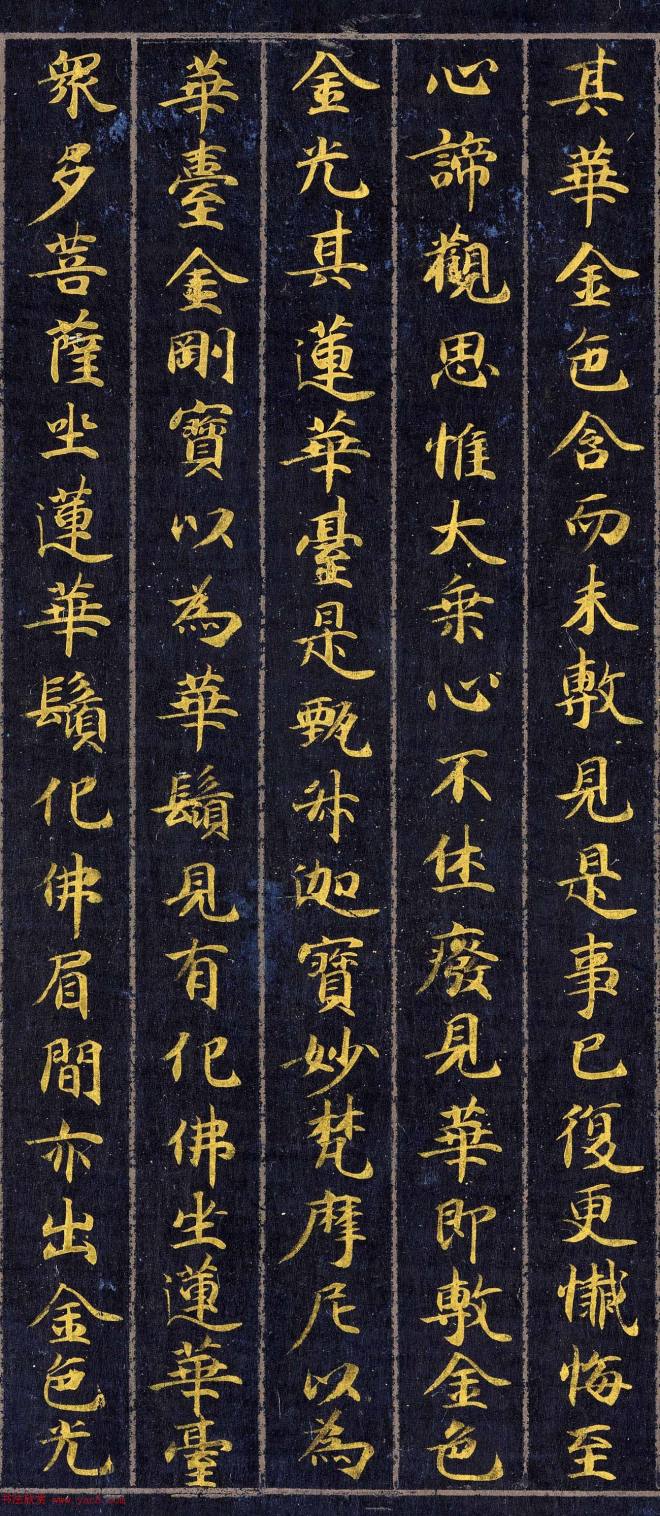 其華金色含而未敷見是事已復更懺悔至
心諦觀思惟大乘心不住廢見華即敷金色
金光其蓮華臺是甄叔伽寶妙梵摩尼以為
華臺金剛寶以為華鬚見有化佛坐蓮華臺
眾多菩薩坐蓮華鬚化佛眉間亦出金色光
书法欣赏 www.yac8.com